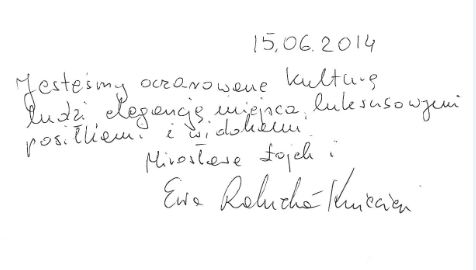 15.06.2014
Jesteśmy oczarowane kulturą
ludzi, elegancją miejsca, luksusowymi
posiłkami i widokami.
Mirosława Łojek i
Ewa